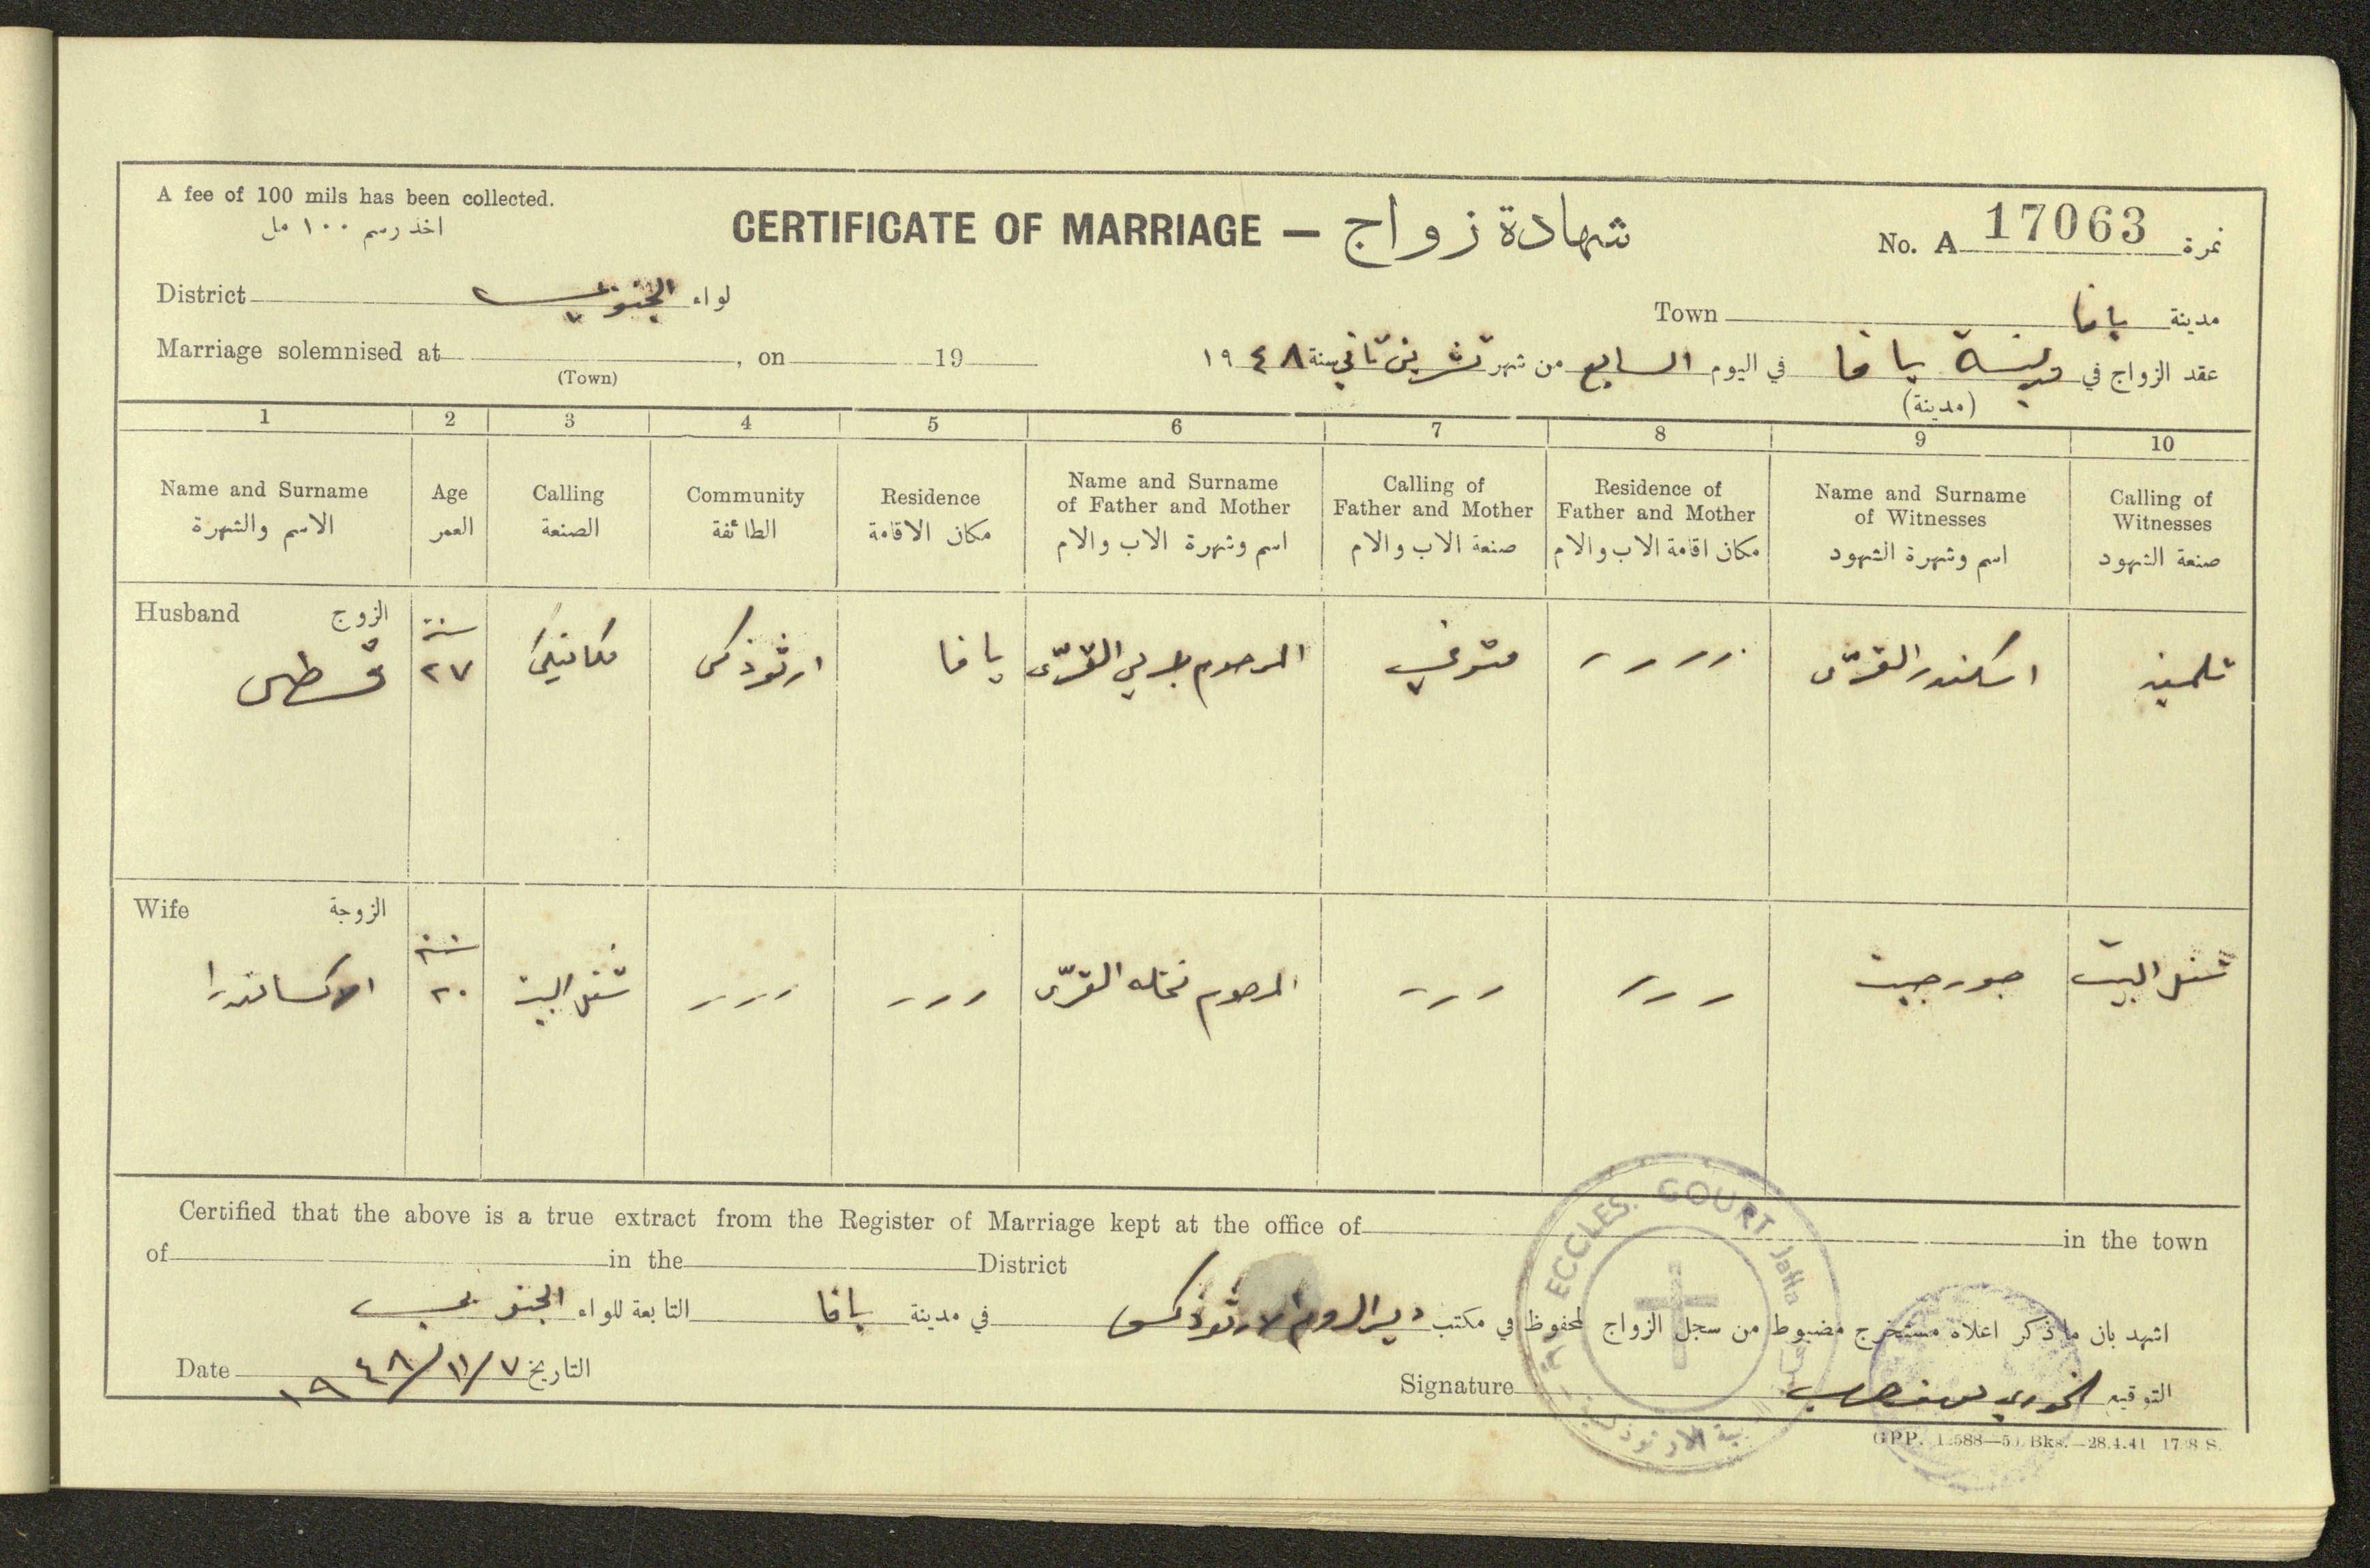 A fee of 100 mils has been collected.
اخذ رسم ١٠٠ مل
CERTIFICATE OF MARRIAGE — شهادة زواج
No. A 17063 نمرة
District الجنوبي لواء
Town يافا مدينة
Marriage solemnised at , on 19
(Town)
عقد الزواج في مدينة يافا في اليوم السابع من شهر تشرين تاني سنة ١٩٤٨
(مدينة)
1 2 3 4 5 6 7 8 9 10
Name and Surname
الاسم والشهرة
Age
العمر
Calling
الصنعة
Community
الطائفة
Residence
مكان الاقامة
Name and Surname
of Father and Mother
اسم وشهرة الاب والام
Calling of
Father and Mother
صنعة الاب والام
Residence of
Father and Mother
مكان اقامة الاب والام
Name and Surname
of Witnesses
اسم وشهرة الشهود
Calling of
Witnesses
صنعة الشهود
Husband الزوج
قسطي
سنة
٢٧
مكانيكي
ارثوذكسي
يافا
المرحوم القزّي
متوفي
اسكندر القزّي
تلميذ
Wife الزوجة
الكساندرا
سنة
٢٠
شغل البيت
المرحوم نخله القزّي
جورجيت
شغل البيت
Certified that the above is a true extract from the Register of Marriage kept at the office of in the town
of in the District
اشهد بان ما ذكر اعلاه مستخرج مضبوط من سجل الزواج المحفوظ في مكتب دير الروم الارثوذكس في مدينة يافا التابعة للواء الجنوبي
Date ١٩٤٨/١١/٧ التاريخ
Signature الخوري التوقيع
ECCLES. COURT Jaffa
الارثوذكسية
G.P.P. 12588—50 Bks.—28.4.41